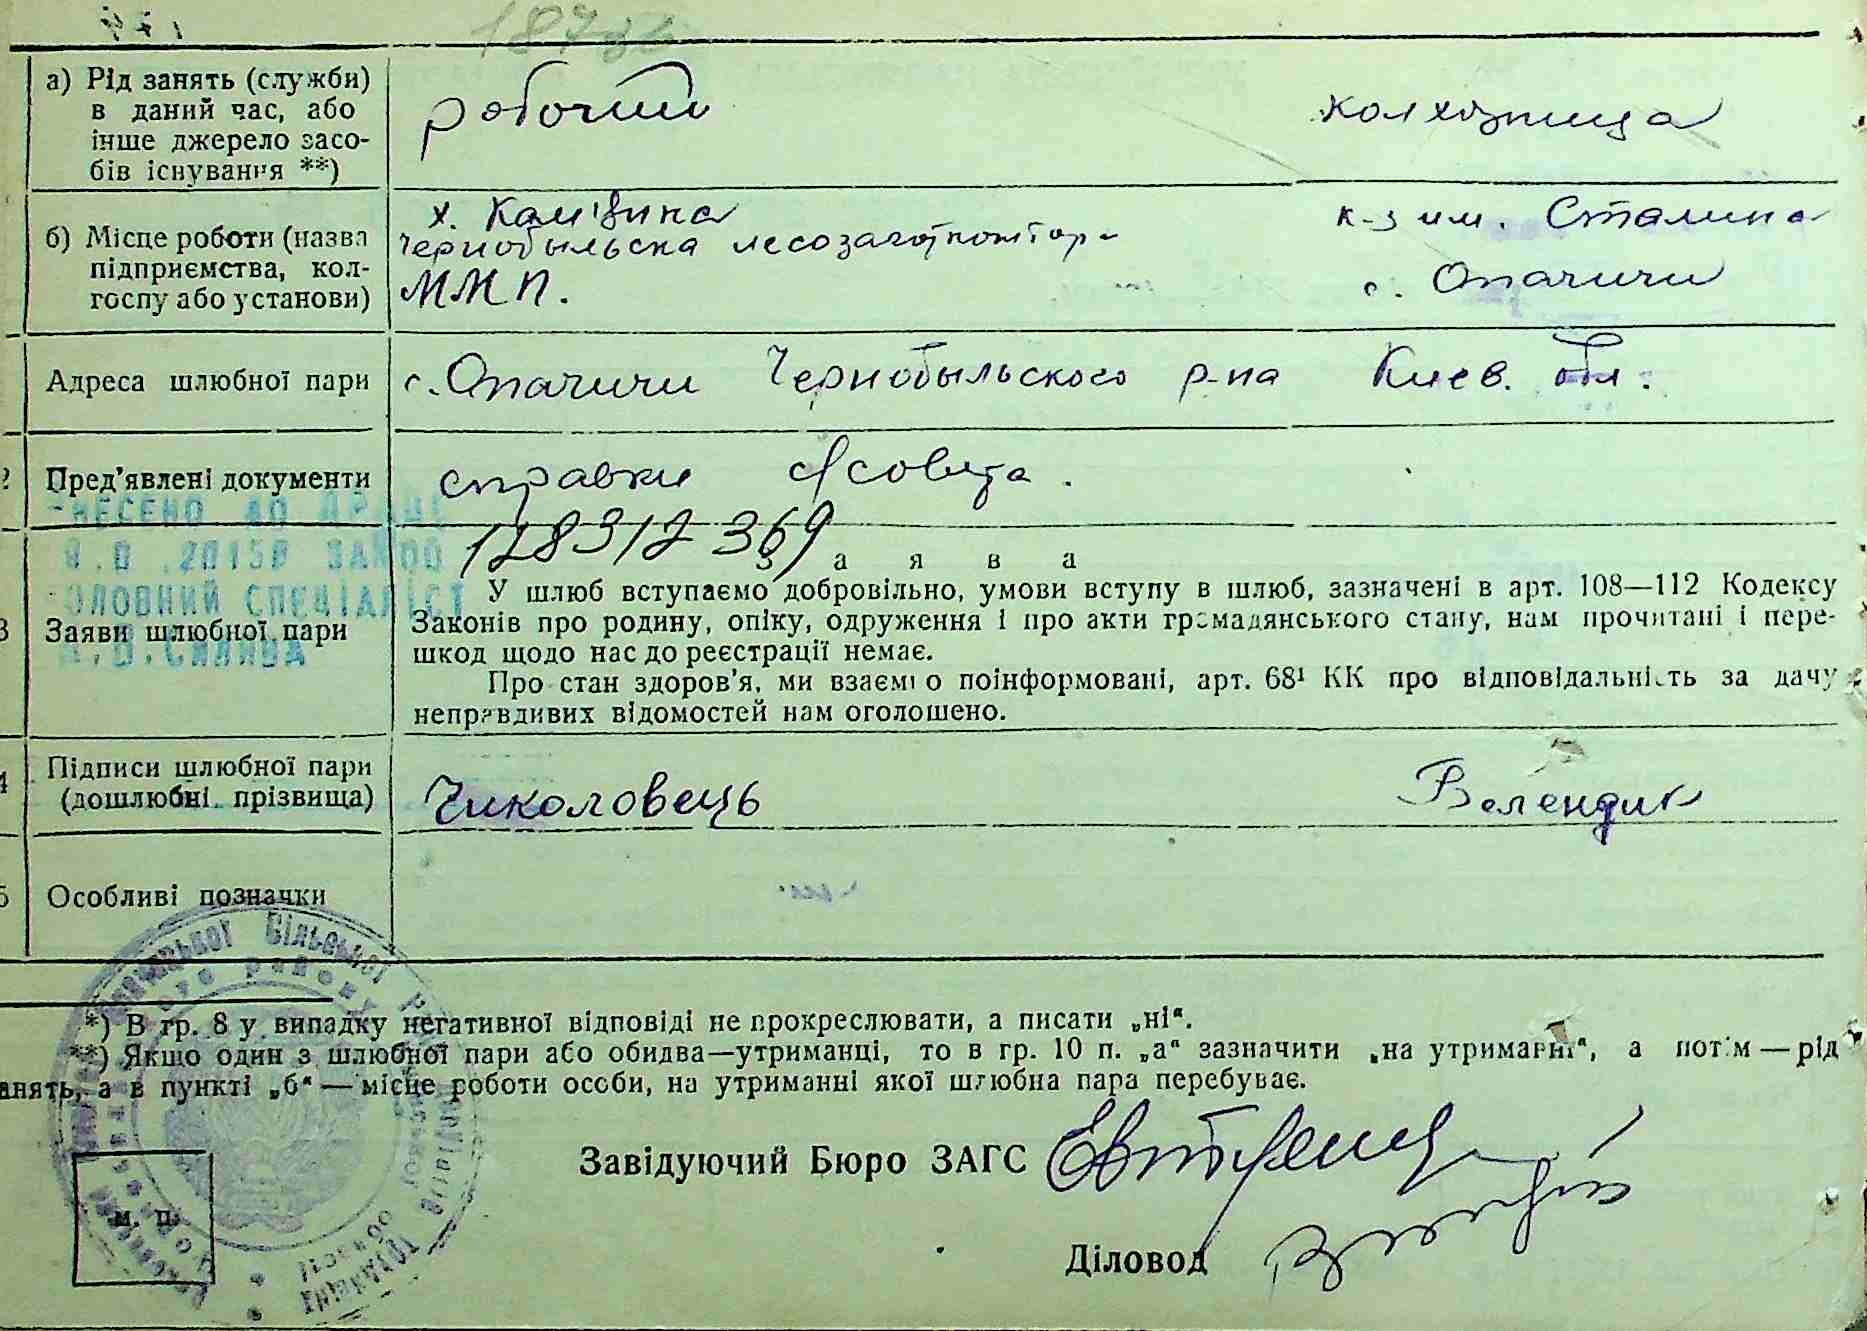 а) Рід занять (служби)
в даний час, або
інше джерело засо-
бів існування **)
рабочий
колхозница
б) Місце роботи (назва
підприємства, кол-
госпу або установи)
х.
Чернобыльска
ММП.
к-з им. Сталина
с. Опачичи
Адреса шлюбної пари
с. Опачичи Чернобыльского р-на Киев. обл.
2
Пред'явлені документи
справки с/совета.
128312369
ВНЕСЕНО ДО ДРАЦС
ГОЛОВНИЙ СПЕЦІАЛІСТ
3
Заяви шлюбної пари
З а я в а
У шлюб вступаємо добровільно, умови вступу в шлюб, зазначені в арт. 108—112 Кодексу
Законів про родину, опіку, одруження і про акти громадянського стану, нам прочитані і пере-
шкод щодо нас до реєстрації немає.
Про стан здоров'я, ми взаємно поінформовані, арт. 68¹ КК про відповідальність за дачу
неправдивих відомостей нам оголошено.
4
Підписи шлюбної пари
(дошлюбні прізвища)
Чиколовець
Велендик
5
Особливі позначки
*) В гр. 8 у випадку негативної відповіді не прокреслювати, а писати „ні“.
**) Якщо один з шлюбної пари або обидва—утриманці, то в гр. 10 п. „а“ зазначити „на утриманні“, а потім — рід
анять, а в пункті „б“ — місце роботи особи, на утриманні якої шлюбна пара перебуває.
Завідуючий Бюро ЗАГС
Діловод
м. п.
Сільської
району
області